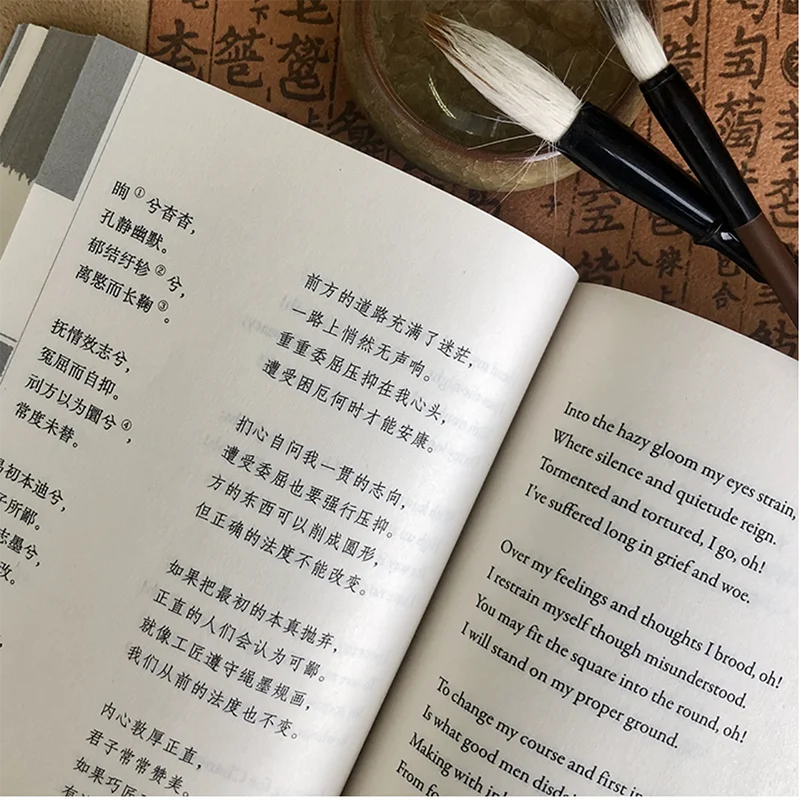 眴①兮杳杳，
孔静幽默。
郁结纡轸②兮，
离慜而长鞠③。
抚情效志兮，
冤屈而自抑。
刓方以为圜兮④，
常度未替。
初本迪兮，
子所鄙。
志墨兮，
改。
前方的道路充满了迷茫，
一路上悄然无声响。
重重委屈压抑在我心头，
遭受困厄何时才能安康。
扪心自问我一贯的志向，
遭受委屈也要强行压抑。
方的东西可以削成圆形，
但正确的法度不能改变。
如果把最初的本真抛弃，
正直的人们会认为可鄙。
就像工匠遵守绳墨规画，
我们从前的法度也不变。
内心敦厚正直，
君子常常赞美。
如果巧匠不
Into the hazy gloom my eyes strain,
Where silence and quietude reign.
Tormented and tortured, I go, oh!
I've suffered long in grief and woe.
Over my feelings and thoughts I brood, oh!
I restrain myself though misunderstood.
You may fit the square into the round, oh!
I will stand on my proper ground.
To change my course and first in
Is what good men disdai
Making with i
From fo